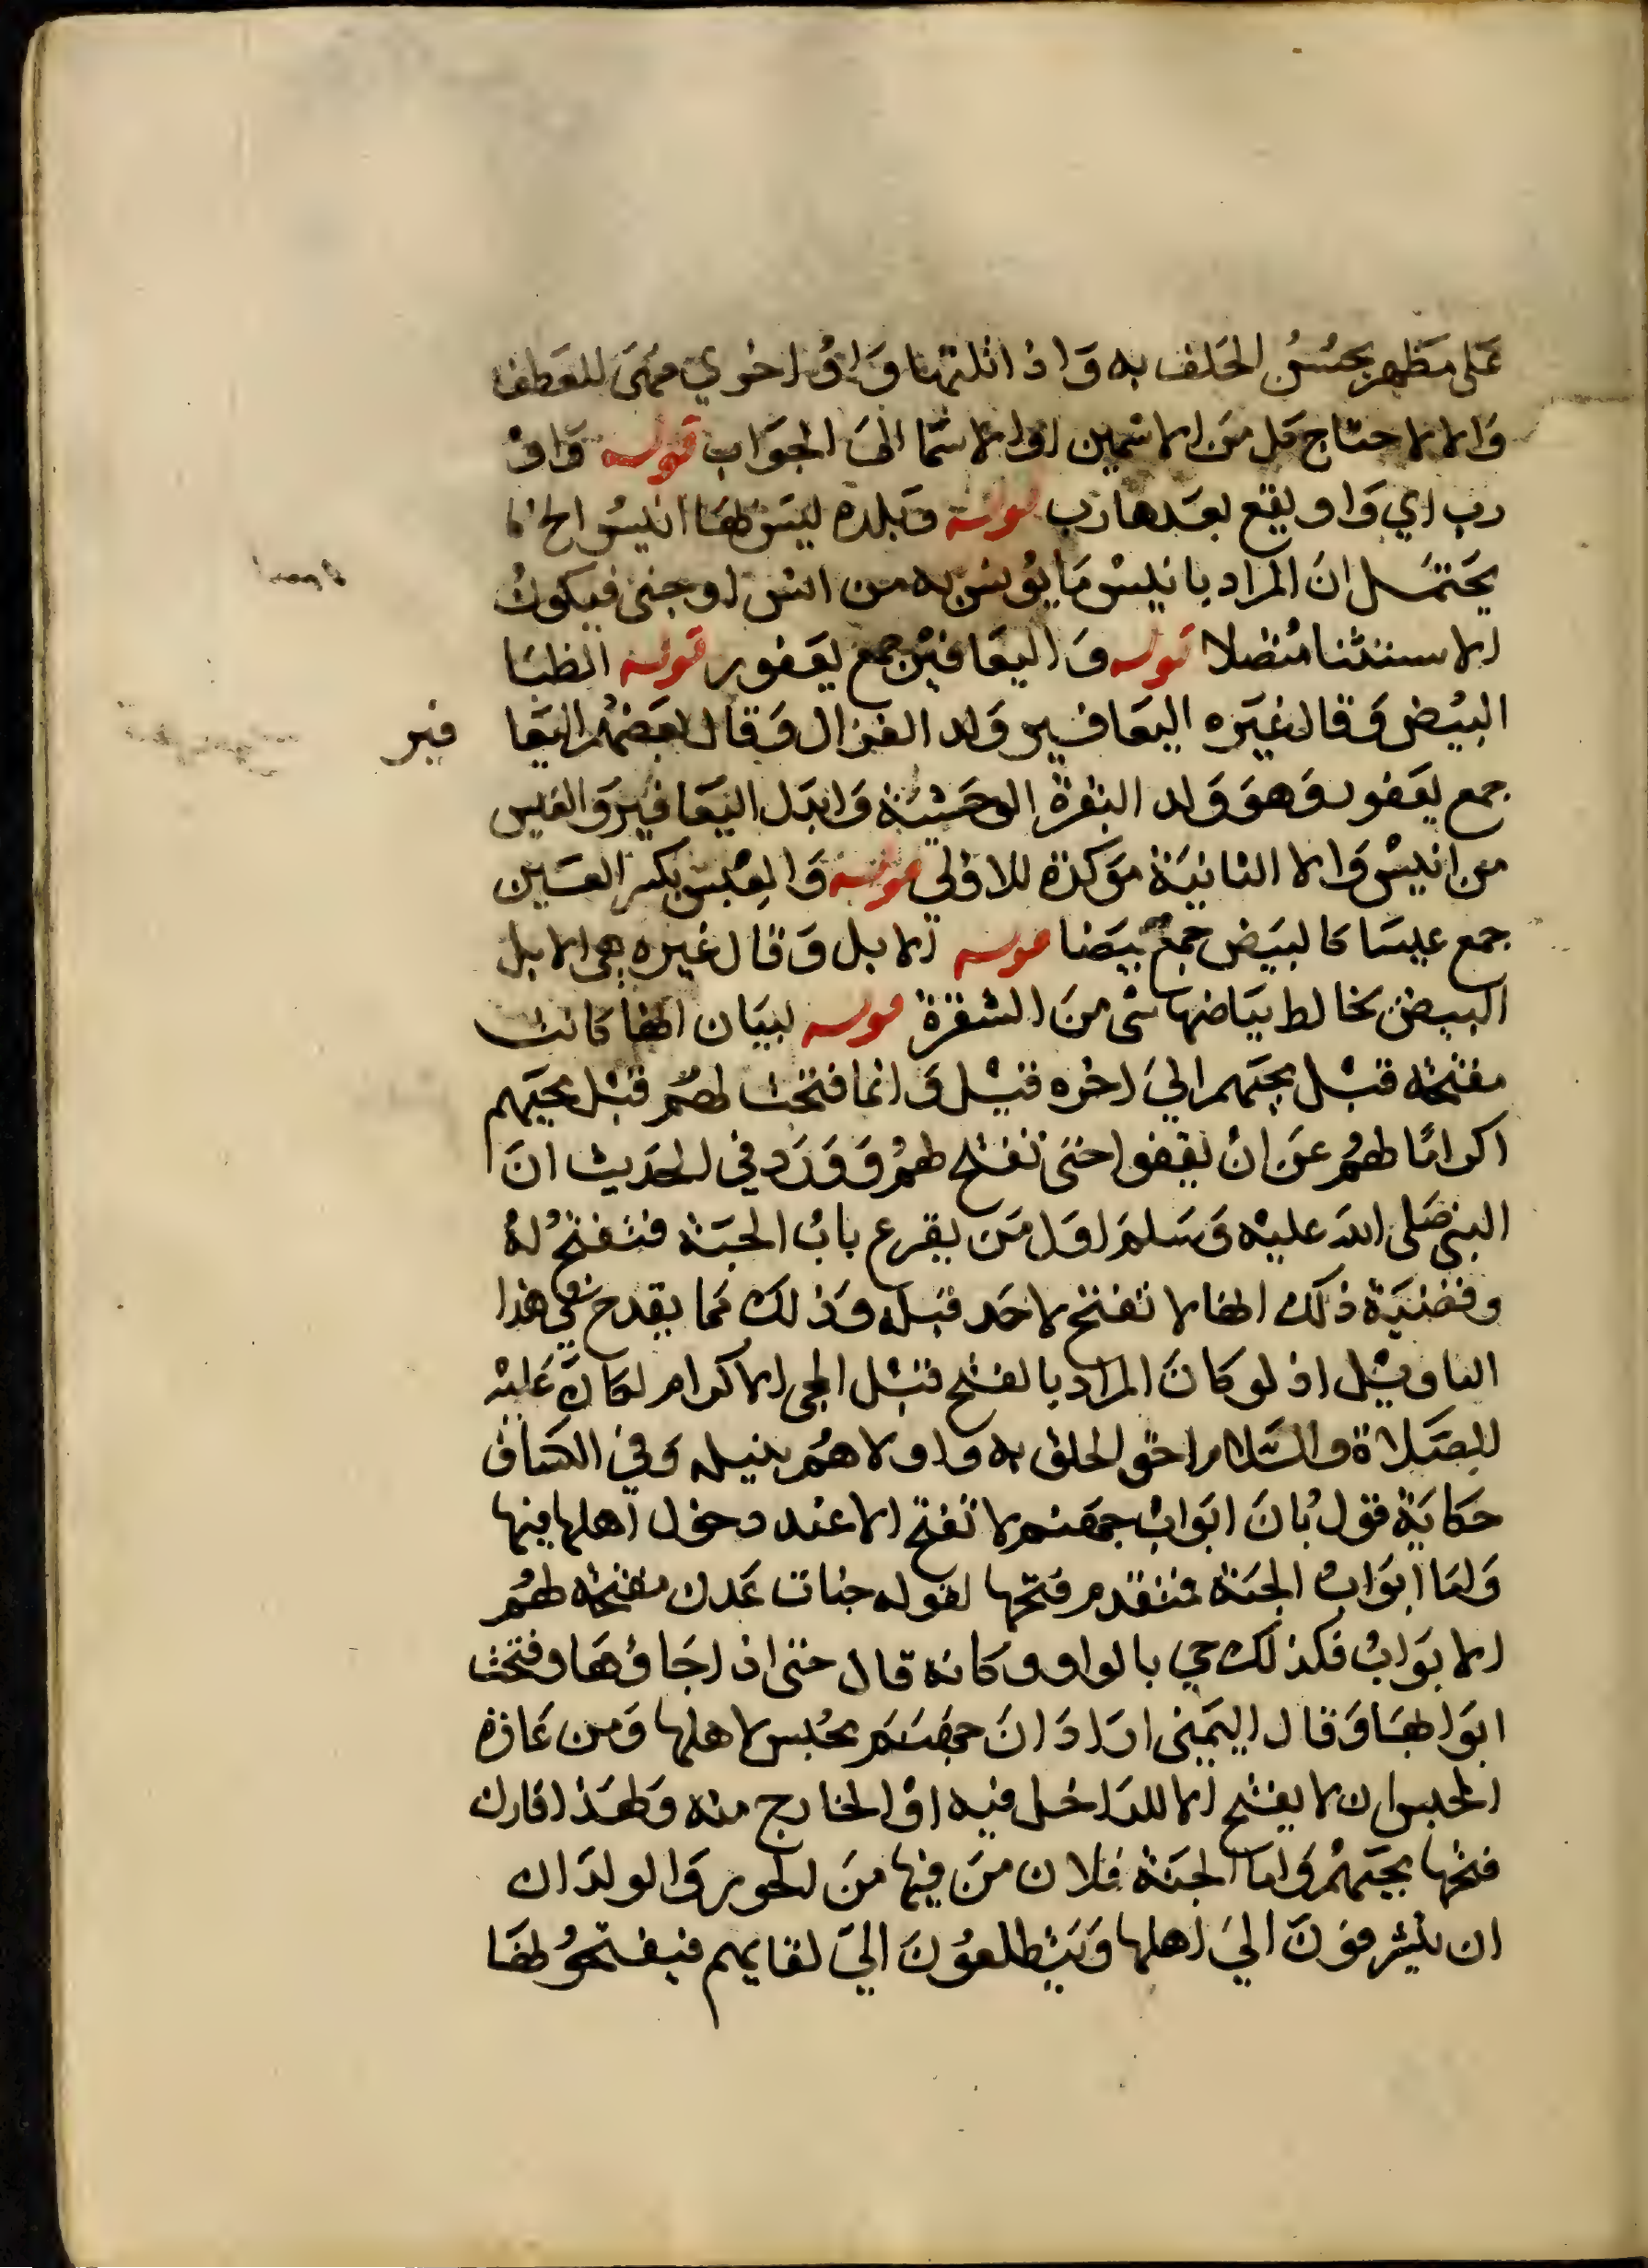 على مظهر بحسن الحلف به واذا تلتها واو اخري فهي للعطف
والا لاحتاج كل من الاسمين او الاسما الى الجواب قوله واو
رب اي واو يقع بعدها رب قوله وبلدة ليس لها انيس الخ
يحتمل ان المراد بانيس ما يونس به من انس او جني فيكون
الاستثنا متصلا قوله واليعافير جمع يعفور قوله الظبا
البيض وقال غيره اليعافير ولد الغزال وقال بعضهم اليعا فير
جمع يعفور وهو ولد البقرة الوحشية وابدل اليعافير والعيس
من انيس والا الثانية موكدة للاولي قوله والعيس بكسر العين
جمع عيسا كالبيض جمع بيضا قوله الابل وقال غيره هي الابل
البيض يخالط بياضها شي من الشقرة قوله لبيان انها كانت
مفتحة قبل مجيهم الي اخره قيل وانما فتحت لهم قبل مجيهم
اكراما لهم عن ان يقفوا حتى تفتح لهم وورد في الحديث ان
النبي صلى الله عليه وسلم اول من يقرع باب الجنة فتفتح له
وقضية ذلك انها لا تفتح لاحد قبله وذلك مما يقدح في هذا
التاويل اذ لو كان المراد بالفتح قبل المجي الاكرام لكان عليه
الصلاة والسلام احق الخلق به واولاهم بنيله وفي الكشاف
حكاية قول بان ابواب جهنم لا تفتح الا عند دخول اهلها فيها
واما ابواب الجنة فتقدم فتحها لقوله جنات عدن مفتحة لهم
الابواب فكذلك جي بالواو وكانه قال حتى اذا جاؤها وفتحت
ابوابها وقال اليمني اراد ان جهنم محبس لاهلها ومن عادة
المحبس ان لا يفتح الا للداخل فيه او الخارج منه ولهذا قارن
فتحها مجيهم واما الجنة فلان من فيها من الحور والولدان
ان يتشرفون الي اهلها ويتطلعون الي لقايهم فيفتحو لها